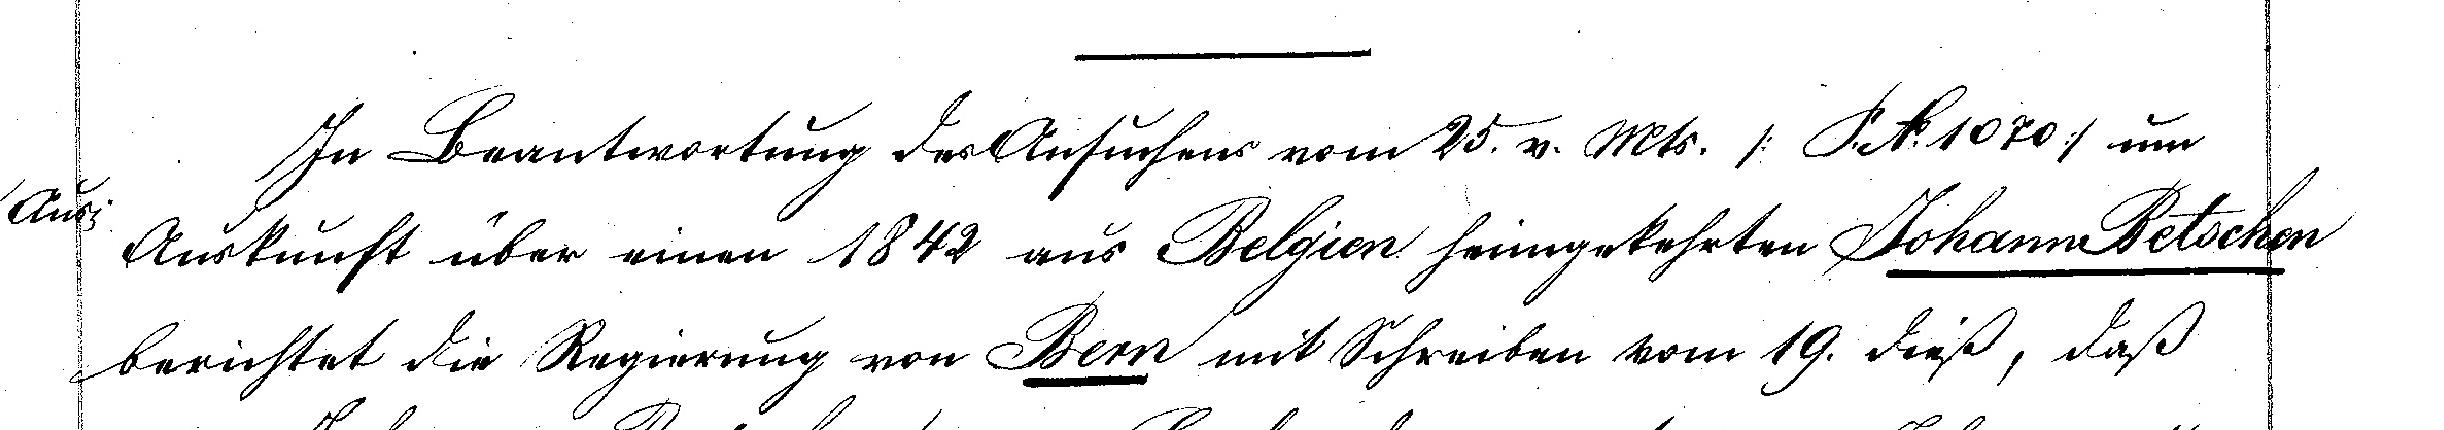 In Beantwortung des Ansuchens vom 25. v. Mts. /: P. № 1070 :/ um
Auskunft über einen 1842 aus Belgien heimgekehrten Johann Betschen
berichtet die Regierung von Bern mit Schreiben vom 19. dieß, daß